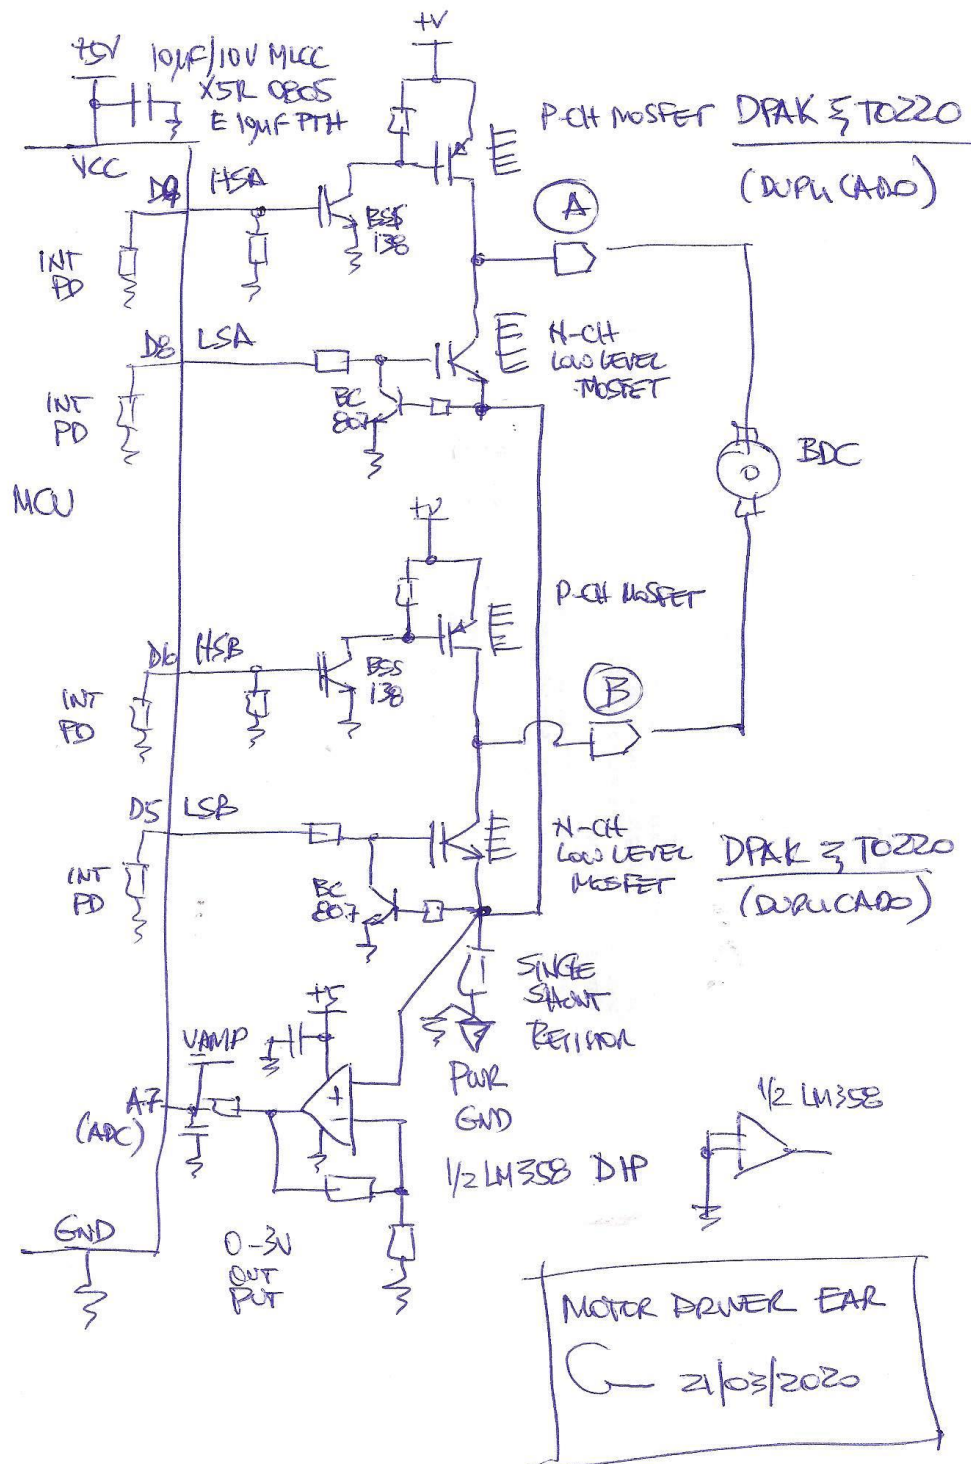 +5V
10µF/10V MLCC
X5R 0805
E 10µF PTH
+V
P-CH MOSFET
DPAK & TO220
(DUPLICADO)
VCC
D9
HSA
BSS
138
A
INT
PD
D8
LSA
N-CH
LOW LEVEL
MOSFET
INT
PD
BC
807
BDC
MCU
+V
P-CH MOSFET
D6
HSB
BSS
138
B
INT
PD
D5
LSB
N-CH
LOW LEVEL
MOSFET
DPAK & TO220
(DUPLICADO)
INT
PD
BC
807
SINGLE
SHUNT
+5
VAMP
PWR
GND
A7
(ADC)
+
-
1/2 LM358 DIP
1/2 LM358
GND
0-3V
OUT
PUT
MOTOR DRIVER EAR
21/03/2020